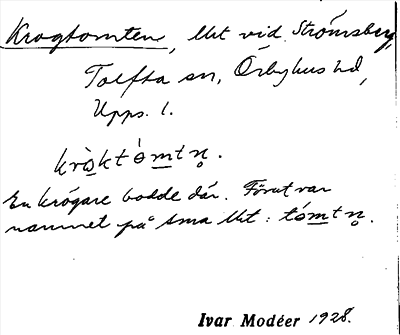 Krogtomten, lht vid Strömsberg,
Tolfta sn, Örbyhus hd,
Upps. l.
kròktòmtn̥.
En krögare bodde där. Förut var
namnet på sma lht: tómtn̥.
Ivar Modéer 1928.